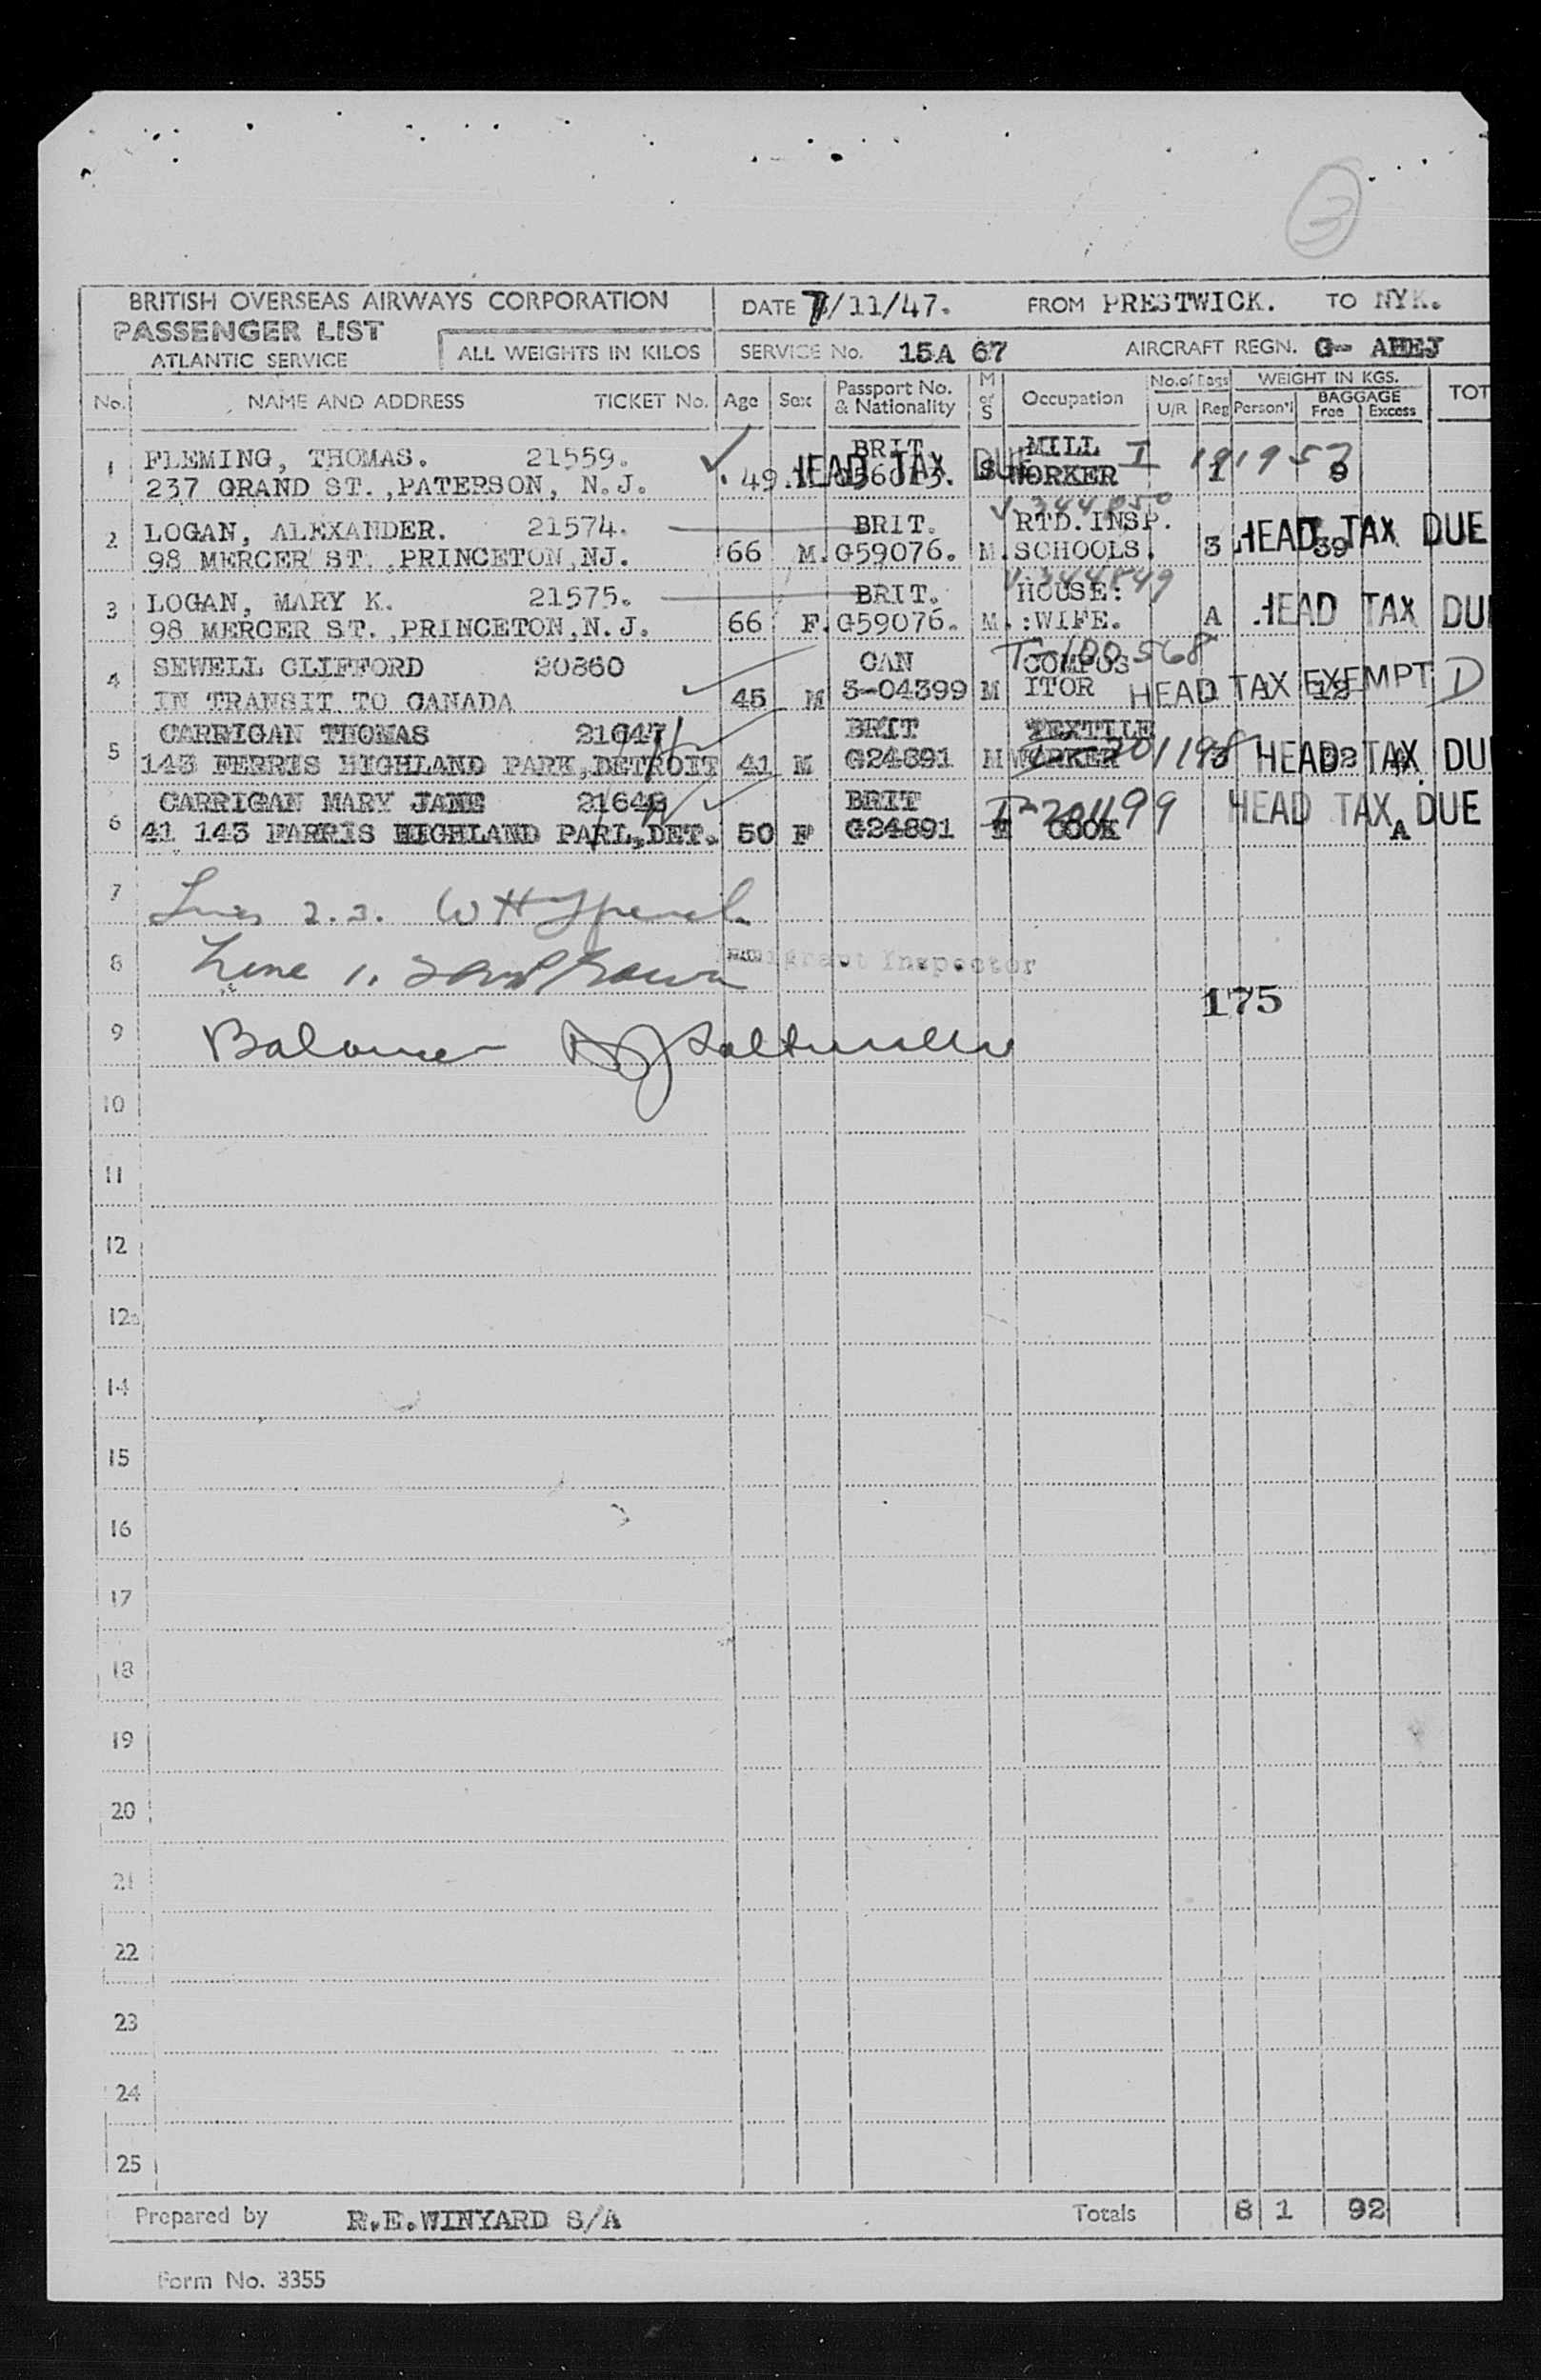 3
BRITISH OVERSEAS AIRWAYS CORPORATION
PASSENGER LIST
ATLANTIC SERVICE
ALL WEIGHTS IN KILOS
DATE 7/11/47. FROM PRESTWICK. TO NYK.
SERVICE No. 15A 67 AIRCRAFT REGN. G- AHEJ
No. NAME AND ADDRESS TICKET No. Age Sex Passport No. & Nationality M or S Occupation No. of Bags U/R Reg WEIGHT IN KGS. Person'l BAGGAGE Free Excess TOT
1 FLEMING, THOMAS. 21559. BRIT. MILL I 1919
237 GRAND ST., PATERSON, N.J. 49. HEAD TAX DUE S WORKER 1 9
V 344850
2 LOGAN, ALEXANDER. 21574. BRIT. RTD. INSP.
98 MERCER ST., PRINCETON, NJ. 66 M. G59076. M. SCHOOLS. 3 39 HEAD TAX DUE
V 344849
3 LOGAN, MARY K. 21575. BRIT. HOUSE:
98 MERCER ST., PRINCETON, N.J. 66 F. G59076. M. :WIFE. A HEAD TAX DU
T-100568
4 SEWELL CLIFFORD 20860 CAN COMPOS
IN TRANSIT TO CANADA 45 M 3-04399 M ITOR HEAD TAX EXEMPT D
5 CARRIGAN THOMAS 21647 BRIT TEXTILE
143 FERRIS HIGHLAND PARK, DETROIT 41 M G24891 M WORKER 201198 HEAD TAX DU
6 CARRIGAN MARY JANE 21648 BRIT 201199
41 143 FARRIS HIGHLAND PARL, DET. 50 F G24891 M COOK A HEAD TAX DUE
7 Lines 2.3.
8 Line 1. Immigrant Inspector
175
9 Balance
10
11
12
12a
14
15
16
17
18
19
20
21
22
23
24
25
Prepared by R.E.WINYARD S/A Totals 8 1 92
Form No. 3355